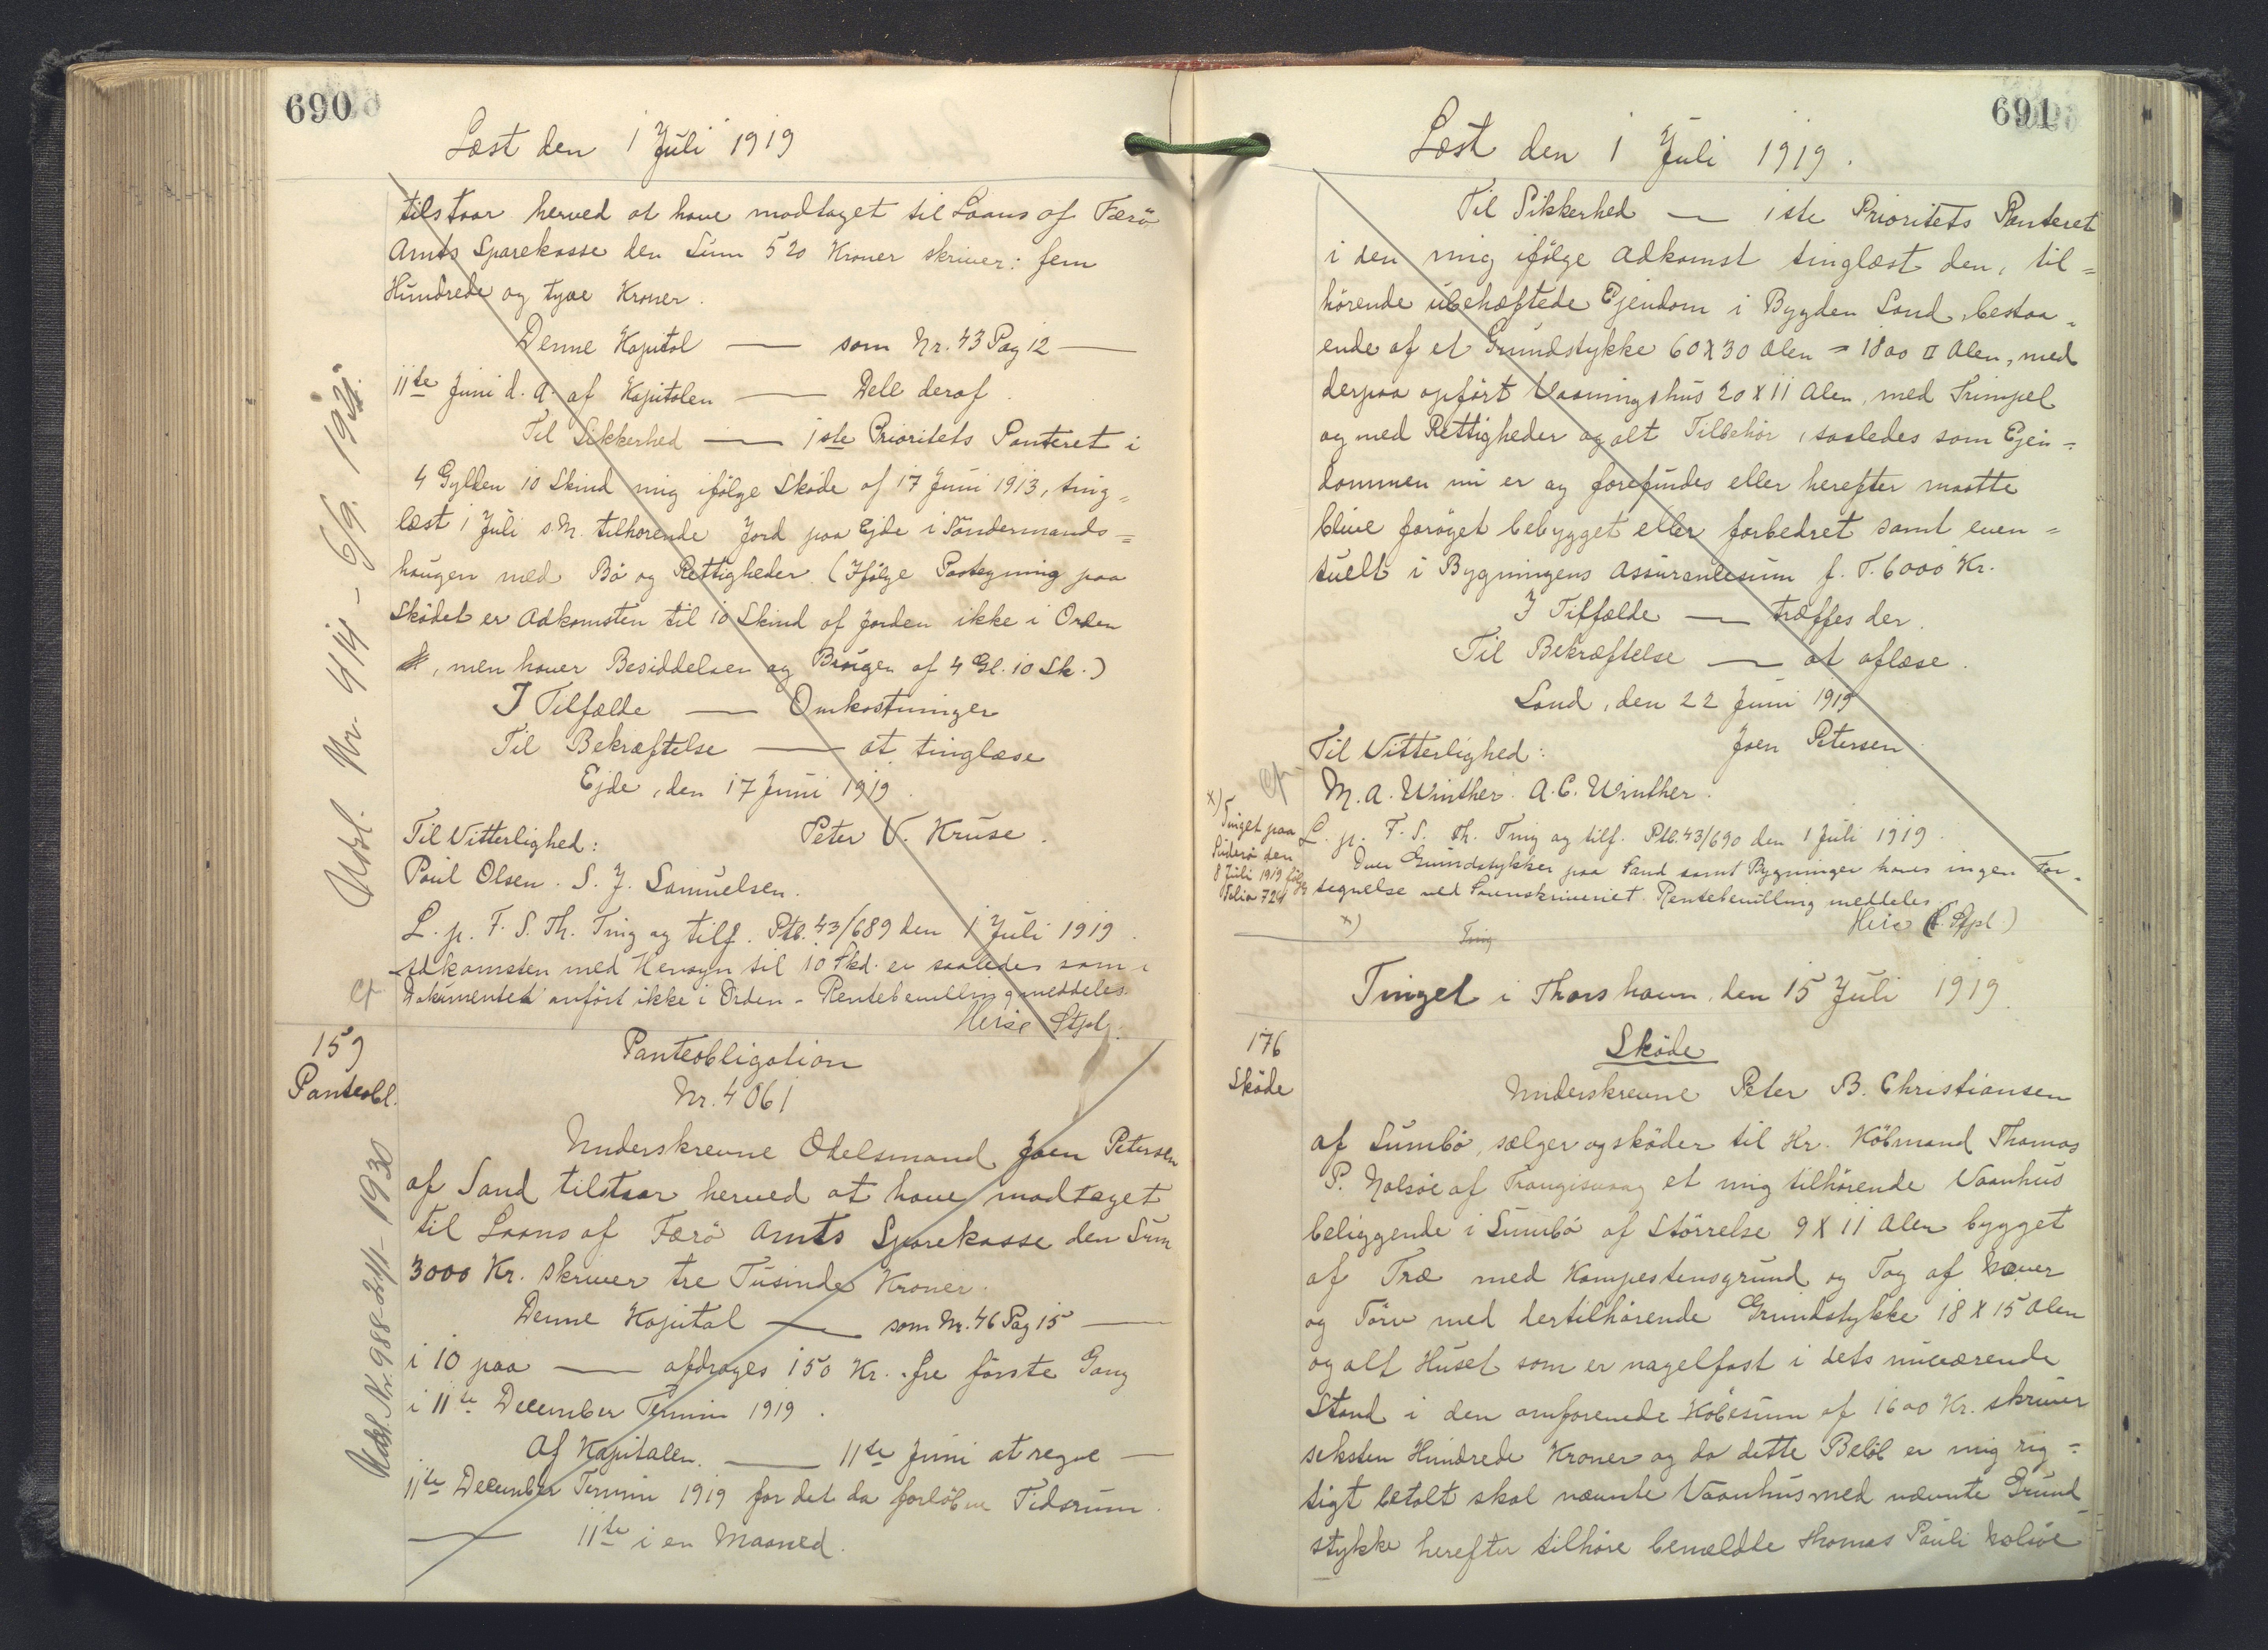 690
Læst den 1 Juli 1919
tilstaar herved at have modtaget til Laans af Færø
Amts Sparekasse den Sum 520 Kroner skriver: fem
Hundrede og tyve Kroner.
Denne Kapital — som Nr. 43 Pag 12 —
11te Juni d. A. af Kapitalen — Dele deraf.
Til Sikkerhed — 1ste Prioritets Panteret i
4 Gylden 10 Skind mig ifølge Skøde af 17 Juni 1913, ting=
læst 1 Juli s. M. tilhørende Jord paa Ejde i Søndermands=
haugen med Bø og Rettigheder. (Ifølge Paategning paa
Skødet er Adkomsten til 10 Skind af Jorden ikke i Orden
, men haver Besiddelsen og Brugen af 4 Gl. 10 Sk.)
I Tilfælde — Omkostninger
Til Bekræftelse — at tinglæse
Ejde, den 17 Juni 1919.
Til Vitterlighed:
Peter V. Kruse.
Poul Olsen. S. J. Samuelsen.
L. p. F. S. Th. Ting og tilf. Ptb. 43/689 den 1 Juli 1919.
Adkomsten med Hensyn til 10 Skd. er saaledes som i
Dokumentet anført ikke i Orden - Rentebevilling meddeles.
Heise Stpl.
Udsl. Nr. 414 - 6/9. 1921.
159
Panteobl.
Panteobligation
Nr. 4061
Underskrevne Odelsmand Joen Petersen
af Sand tilstaar herved at have modtaget
til Laans af Færø Amts Sparekasse den Sum
3000 Kr. skriver tre Tusinde Kroner.
Denne Kapital — som Nr. 46 Pag 15 —
i 10 paa — afdrages 150 Kr. fre første Gang
i 11te December Termin 1919.
Af Kapitalen. — 11te Juni at regne —
11te December Termin 1919 for det da forløbne Tidsrum.
— 11te i en Maaned.
Udsl. Nr. 988 - 1930
691
Læst den 1 Juli 1919.
Til Sikkerhed — 1ste Prioritets Panteret
i den mig ifølge Adkomst tinglæst den, til=
hørende ubehæftede Ejendom i Bygden Sand, bestaa=
ende af et Grundstykke 60 X 30 Alen = 1800 □ Alen, med
derpaa opført Vaaningshus 20 X 11 Alen, med Trimpel
og med Rettigheder og alt Tilbehør, saaledes som Ejen=
dommen nu er og forefindes eller herefter maatte
blive forøget bebygget eller forbedret samt even=
tuelt i Bygningens Assurancesum f. T. 6000 Kr.
I Tilfælde — træffes der.
Til Bekræftelse — at aflæse.
Sand, den 22 Juni 1919
Til Vitterlighed:
Joen Petersen
M. A. Winther. A. C. Winther.
L. p. F. S. Th. Ting og tilf. Ptb. 43/690 den 1 Juli 1919.
Over Grundstykker paa Sand samt Bygninger haves ingen For=
tegnelse ved Sorenskriveriet. Rentebevilling meddeles.
x)
Heise (Stpl.)
x) Tinget paa
Suderø den
8 Juli 1919 følg
Folio 724
Ting
Tinget i Thorshavn, den 15 Juli 1919.
176
Skøde
Skøde
Underskrevne Peter B. Christiansen
af Sumbø, sælger og skøder til Hr. Købmand Thomas
P. Nolsøe af Trangisvaag et mig tilhørende Vaanhus
beliggende i Sumbø af Størrelse 9 X 11 Alen bygget
af Træ med Kampestensgrund og Tag af Næver
og Tørv med dertilhørende Grundstykke 18 X 15 Alen
og alt Huset som er nagelfast i dets nuværende
Stand i den omforenede Købesum af 1600 Kr. skriver
seksten Hundrede Kroner og da dette Beløb er mig rig=
tigt betalt skal nævnte Vaanhus med nævnte Grund
stykke herefter tilhøre bemeldte Thomas Pauli Nolsøe